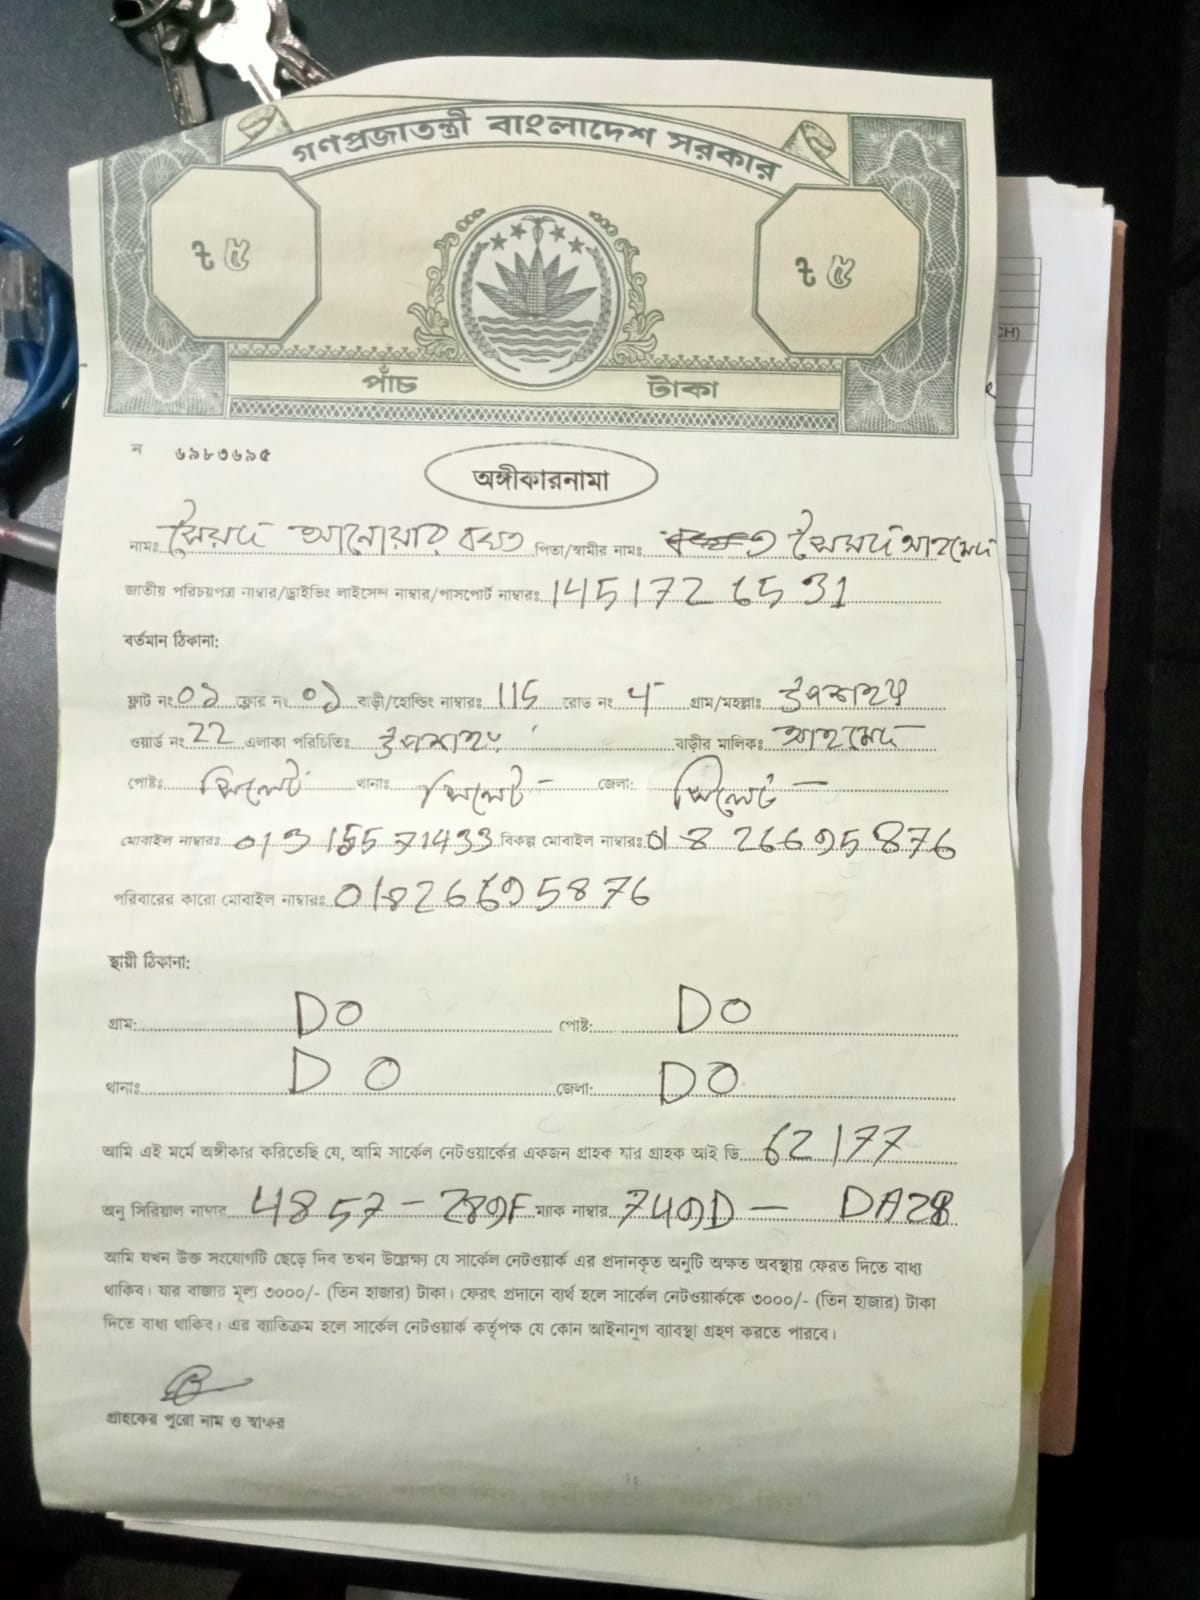 গণপ্রজাতন্ত্রী বাংলাদেশ সরকার
৳ ৫ ৳ ৫
পাঁচ টাকা
ন ৬৯৮৩৬৯৫
অঙ্গীকারনামা
নামঃ সৈয়দ আনোয়ার বখত পিতা/স্বামীর নামঃ সৈয়দ আহমেদ
জাতীয় পরিচয়পত্র নাম্বার/ড্রাইভিং লাইসেন্স নাম্বার/পাসপোর্ট নাম্বারঃ 1451726531
বর্তমান ঠিকানা:
ফ্লাট নং ০১ ফ্লোর নং ০১ বাড়ী/হোল্ডিং নাম্বারঃ 115 রোড নং 4 গ্রাম/মহল্লাঃ উপশহর
ওয়ার্ড নং 22 এলাকা পরিচিতিঃ উপশহর বাড়ীর মালিকঃ আহমেদ
পোষ্টঃ সিলেট থানাঃ সিলেট জেলা: সিলেট
মোবাইল নাম্বারঃ বিকল্প মোবাইল নাম্বারঃ 01826695876
পরিবারের কারো মোবাইল নাম্বারঃ 01826695876
স্থায়ী ঠিকানা:
গ্রাম: DO পোষ্ট: DO
থানাঃ DO জেলা: DO
আমি এই মর্মে অঙ্গীকার করিতেছি যে, আমি সার্কেল নেটওয়ার্কের একজন গ্রাহক যার গ্রাহক আই ডি 62177
অনু সিরিয়াল নাম্বার 4857 - 289F ম্যাক নাম্বার 749D - DA28
আমি যখন উক্ত সংযোগটি ছেড়ে দিব তখন উল্লেক্ষ্য যে সার্কেল নেটওয়ার্ক এর প্রদানকৃত অনুটি অক্ষত অবস্থায় ফেরত দিতে বাধ্য
থাকিব। যার বাজার মূল্য ৩০০০/- (তিন হাজার) টাকা। ফেরৎ প্রদানে ব্যর্থ হলে সার্কেল নেটওয়ার্ককে ৩০০০/- (তিন হাজার) টাকা
দিতে বাধ্য থাকিব। এর ব্যাতিক্রম হলে সার্কেল নেটওয়ার্ক কর্তৃপক্ষ যে কোন আইনানুগ ব্যাবস্থা গ্রহণ করতে পারবে।
গ্রাহকের পুরো নাম ও স্বাক্ষর